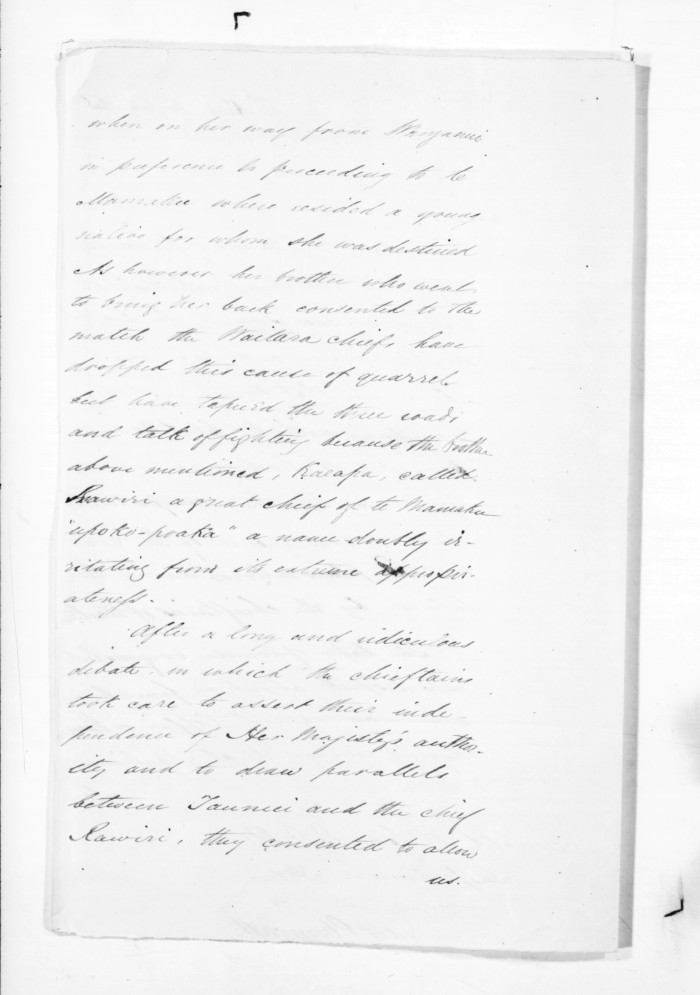 when on her way from Wanganui
in preference to proceeding to te
Mamaku where resided a young
native for whom she was destined
As however her brother who went
to bring her back consented to the
match the Waitara chiefs have
dropped this cause of quarrel
but have tapu'd the three roads
and talk of fighting because the brother
above mentioned, called
Rawiri a great chief of te Mamaku
"upoko-poaka" a name doubly ir-
ritating from its extreme appropri-
ateness.
After a long and ridiculous
debate in which the chieftains
took care to assert their inde-
pendence of Her Majesty's author-
ity and to draw parallels
between and the chief
Rawiri, they consented to allow
us.